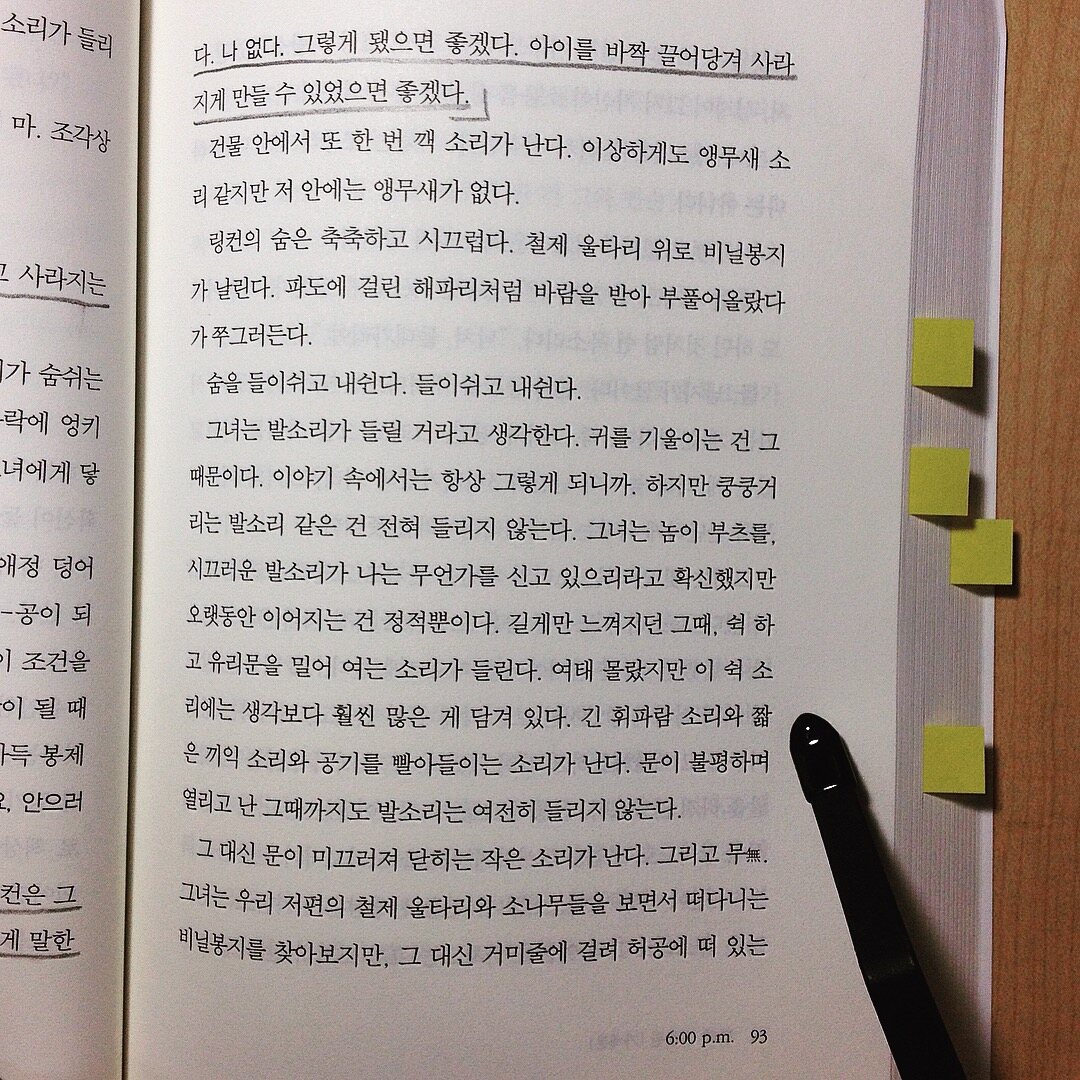 소리가 들리
마. 조각상
고 사라지는
가 숨쉬는
락에 엉키
녀에게 닿
애정 덩어
-공이 되
이 조건을
이 될 때
득 봉제
안으러
컨은 그
게 말한
다. 나 없다. 그렇게 됐으면 좋겠다. 아이를 바짝 끌어당겨 사라
지게 만들 수 있었으면 좋겠다.
건물 안에서 또 한 번 깩 소리가 난다. 이상하게도 앵무새 소
리 같지만 저 안에는 앵무새가 없다.
링컨의 숨은 축축하고 시끄럽다. 철제 울타리 위로 비닐봉지
가 날린다. 파도에 걸린 해파리처럼 바람을 받아 부풀어올랐다
가 쭈그러든다.
숨을 들이쉬고 내쉰다. 들이쉬고 내쉰다.
그녀는 발소리가 들릴 거라고 생각한다. 귀를 기울이는 건 그
때문이다. 이야기 속에서는 항상 그렇게 되니까. 하지만 쿵쿵거
리는 발소리 같은 건 전혀 들리지 않는다. 그녀는 놈이 부츠를,
시끄러운 발소리가 나는 무언가를 신고 있으리라고 확신했지만
오랫동안 이어지는 건 정적뿐이다. 길게만 느껴지던 그때, 쉭 하
고 유리문을 밀어 여는 소리가 들린다. 여태 몰랐지만 이 쉭 소
리에는 생각보다 훨씬 많은 게 담겨 있다. 긴 휘파람 소리와 짧
은 끼익 소리와 공기를 빨아들이는 소리가 난다. 문이 불평하며
열리고 난 그때까지도 발소리는 여전히 들리지 않는다.
그 대신 문이 미끄러져 닫히는 작은 소리가 난다. 그리고 무無.
그녀는 우리 저편의 철제 울타리와 소나무들을 보면서 떠다니는
비닐봉지를 찾아보지만, 그 대신 거미줄에 걸려 허공에 떠 있는
6:00 p.m. 93